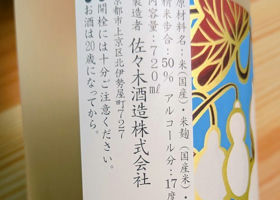 原材料名：米(国産)・米麹(国産米)・
精米歩合：50% アルコール分：17度
内容量：720㎖
製造者 佐々木酒造株式会社
京都市上京区北伊勢屋町727
開栓には十分ご注意ください。
●お酒は20歳になってから。